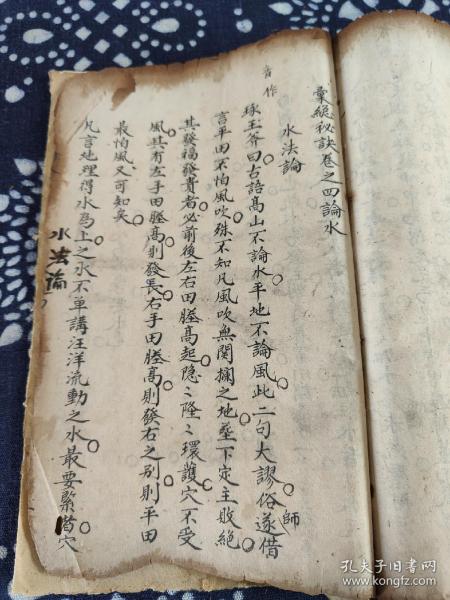 彙絕秘訣卷之四論水
音作
水法論
琢玉斧曰古語高山不論水平地不論風此二句大謬俗遂借
師
言平田不怕風吹殊不知凡風吹無関攔之地塟下定主敗絕
其發福發貴者必前後左右田塍高起隐〻隆〻環護穴不受
風其有左手田塍高則發長右手田塍高則發右之别則平田
最怕風又可知矣
凡言地理得水為上之水不單講汪洋流動之水最要緊借穴
水法論
孔夫子旧书网